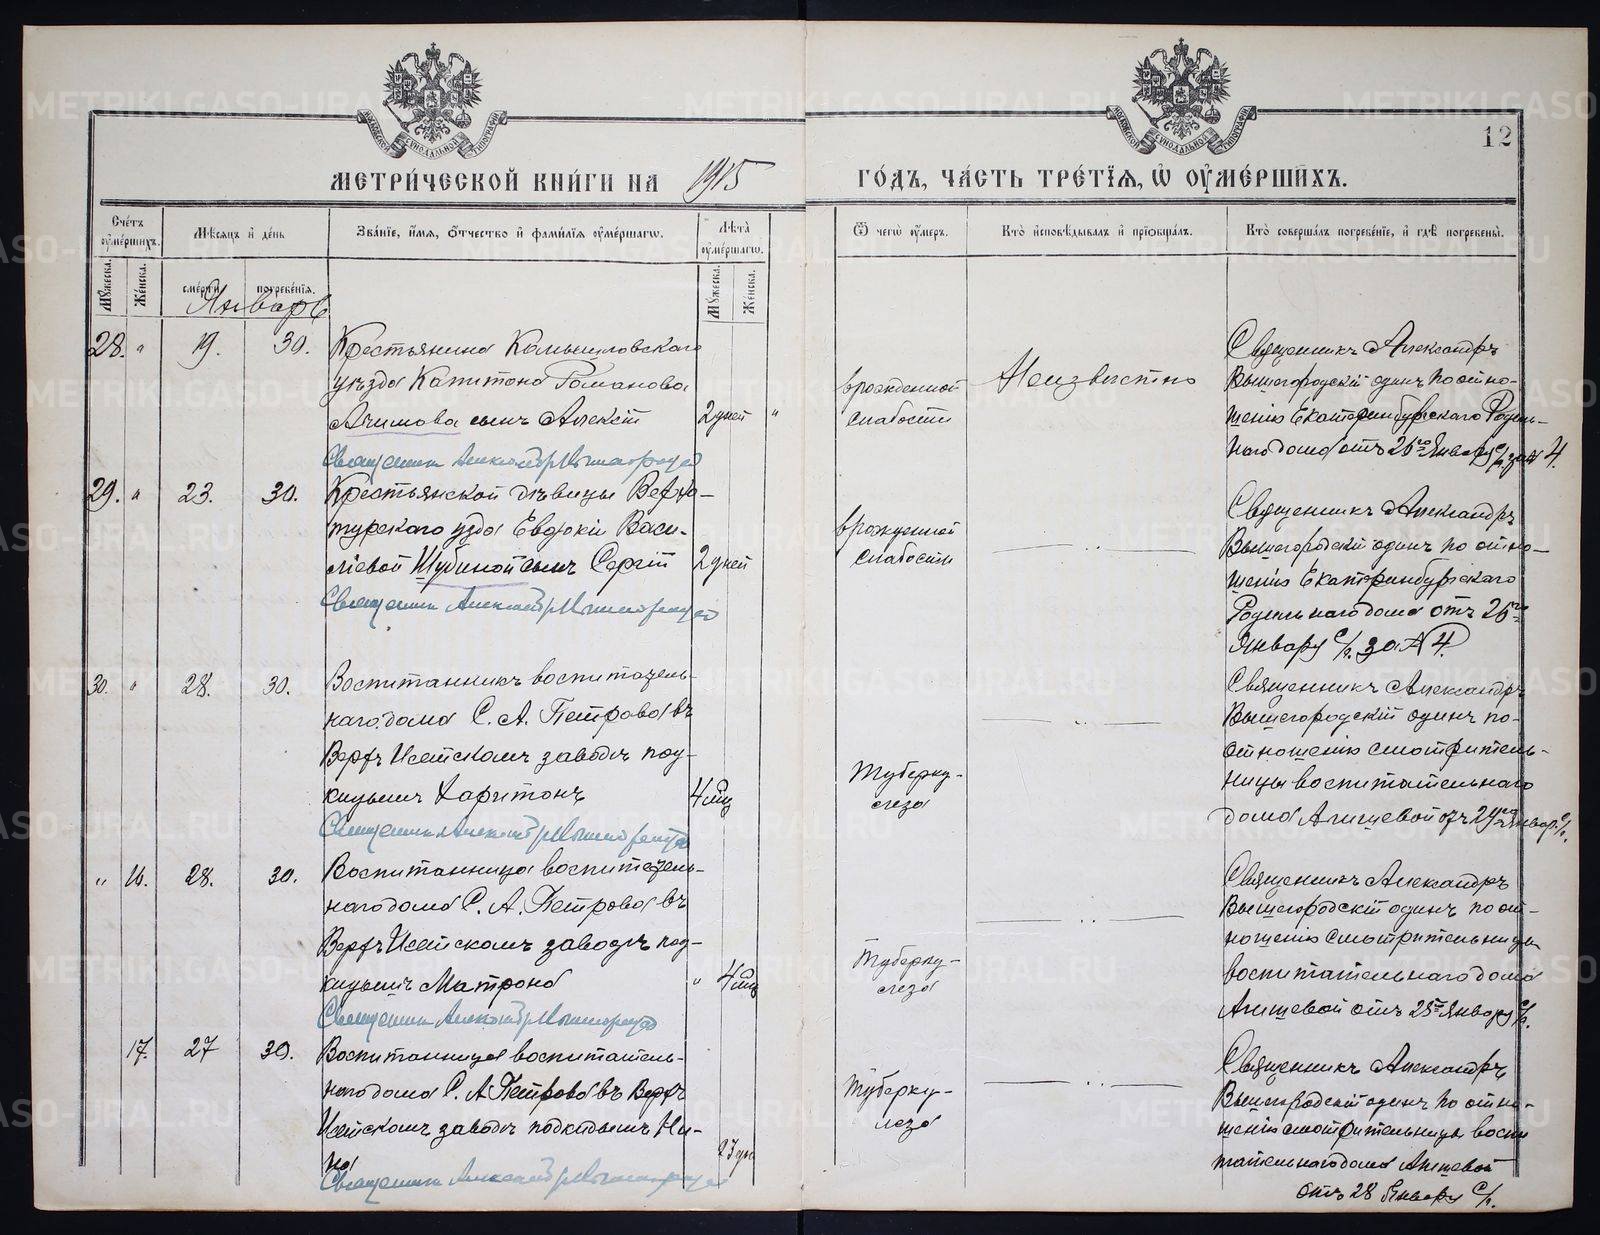 12
МЕТРИ́ЧЕСКОЙ КНИ́ГИ НА 1915 ГО́ДЪ, ЧА́СТЬ ТРЕ́ТІЯ, Ѡ ОУ҆МЕ́РШИХЪ.
Счетъ оумершихъ.
Мѣсяцъ и день
Званіе, имя, отчество и фамилія оумершагѡ.
Лѣта оумершагѡ.
Ѿ чегѡ оумеръ.
Кто исповѣдывалъ и пріобщалъ.
Кто совершалъ погребеніе, и гдѣ погребены.
Мужеска.
Женска.
смерти
погребенія.
Мужеска.
Женска.
Январь
28. " 19. 30.
Крестьянина Камышловскаго
уѣзда Капитона Романова
Акимова сынъ Алексій
2 дней "
Священникъ Александръ Вышегородскій
врожденной
слабости
Неизвѣстно
Священникъ Александръ
Вышегородскій одинъ по отно-
шенію Екатеринбургскаго Родиль-
наго дома отъ 26го Января с/г за № 4.
29. " 23. 30.
Крестьянской дѣвицы Верхо-
турскаго уѣзда Евдокіи Васи-
лiевой Шубиной сынъ Сергій
2 дней
Священникъ Александръ Вышегородскій
врожденной
слабости
— " —
Священникъ Александръ
Вышегородскій одинъ по отно-
шенію Екатеринбургскаго
Родильнаго дома отъ 26го
Января с/г. за № 4.
30. " 28. 30.
Воспитанникъ воспитатель-
наго дома С. А. Петрова въ
Верхъ Исетскомъ заводѣ под-
кидышъ Харитонъ
4 мѣс
Священникъ Александръ Вышегородскій
Туберку-
леза
— " —
Священникъ Александръ
Вышегородскій одинъ по-
отношенію смотритель-
ницы воспитательнаго
дома Агищевой отъ 29го Январ. с/г.
" 16. 28. 30.
Воспитанница воспитатель-
наго дома С. А. Петрова въ
Верхъ Исетскомъ заводѣ под-
кидышъ Матрона
" 4 мѣс
Священникъ Александръ Вышегородскій
Туберку-
леза
— " —
Священникъ Александръ
Вышегородскій одинъ по от-
ношенію смотрительницы
воспитательнаго дома
Агищевой отъ 28го Января с/г.
17. 27 30.
Воспитанница воспитатель-
наго дома С. А. Петрова въ Верхъ
Исетскомъ заводѣ подкидышъ Ни-
на
27 дн
Священникъ Александръ Вышегородскій
Туберку-
леза
— " —
Священникъ Александръ
Вышегородскій одинъ по отно-
шенію смотрительницы воспи
тательнаго дома Агищевой
отъ 28 Января с/г.